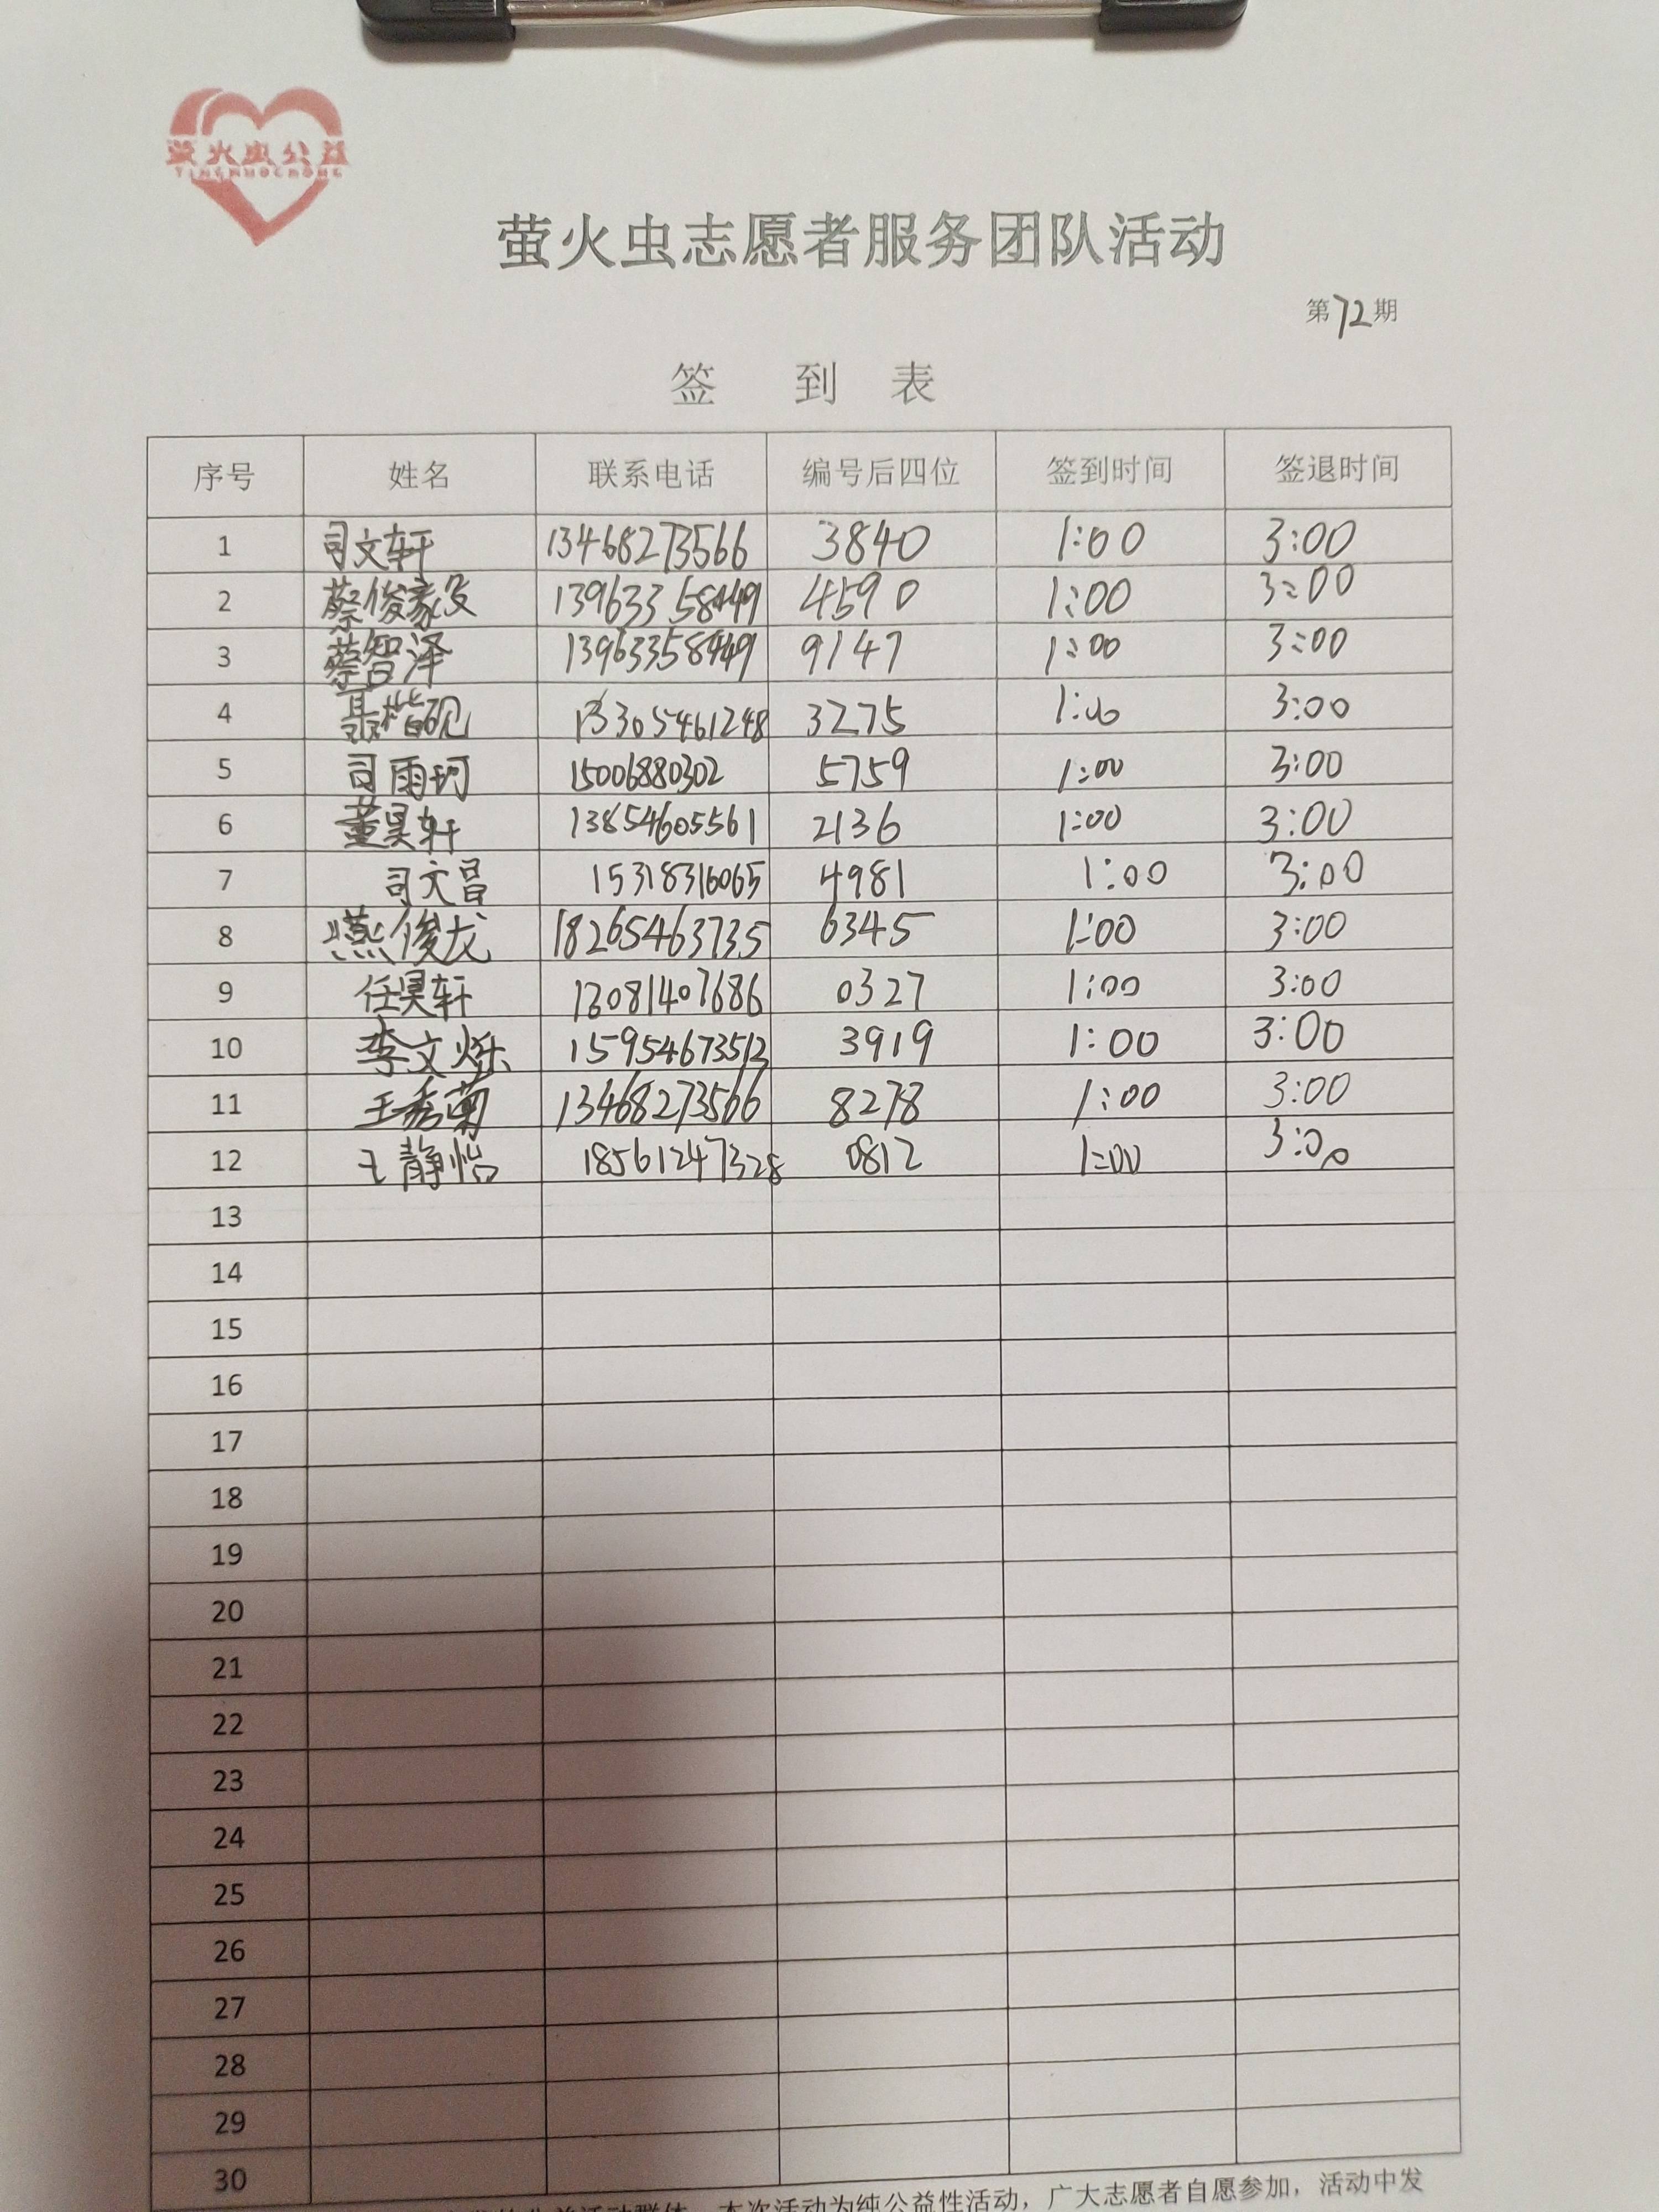 萤火虫公益
YINGHUOCHONG
萤火虫志愿者服务团队活动
第72期
签 到 表
序号 姓名 联系电话 编号后四位 签到时间 签退时间
1 司文轩 13468273566 3840 1:00 3:00
2 蔡俊毅 13963358449 4590 1:00 3:00
3 蔡智泽 13963358449 9147 1:00 3:00
4 聂楷砚 13305461248 3275 1:00 3:00
5 司雨珂 15006880302 5759 1:00 3:00
6 董昊轩 13854605561 2136 1:00 3:00
7 司文昌 15318316065 4981 1:00 3:00
8 燕俊龙 18265463735 6345 1:00 3:00
9 任昊轩 13081407686 0327 1:00 3:00
10 李文烁 15954673512 3919 1:00 3:00
11 王秀菊 13468273566 8278 1:00 3:00
12 王静怡 18561247328 0812 1:00 3:00
13
14
15
16
17
18
19
20
21
22
23
24
25
26
27
28
29
30
本次活动为纯公益性活动，广大志愿者自愿参加，活动中发